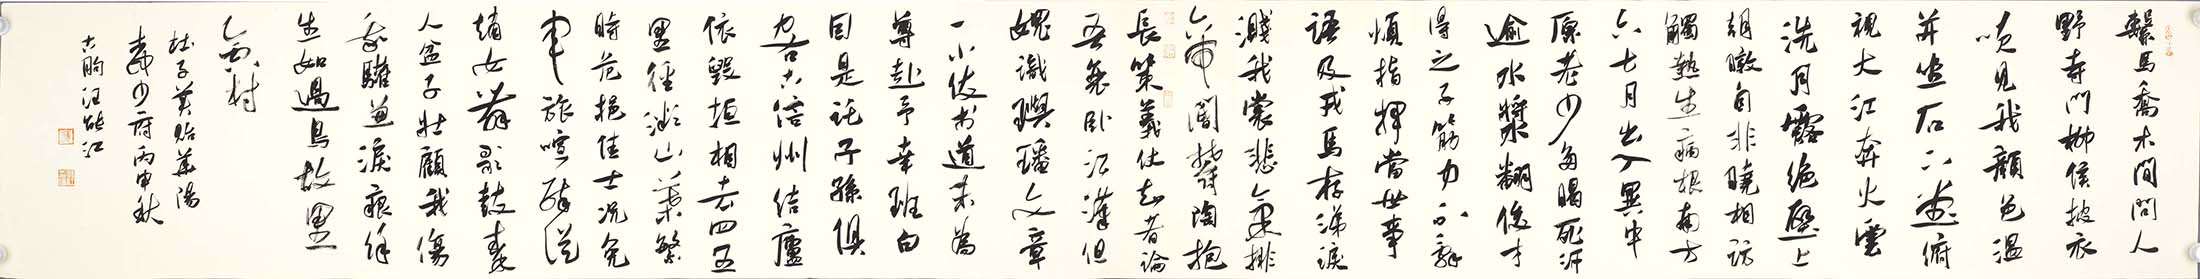 繫馬喬木間問人
野寺門柳侯披衣
笑見我顏色溫
並坐石下堂俯
視大江奔火雲
洗月露絕壁上
朝暾自非曉相訪
觸熱生病根南方
六七月出入異中
原老少多暍死汗
逾水漿翻俊才
得之子筋力不辭
煩指揮當世事
語及戎馬存涕淚
濺我裳悲氣排
帝閽鬱陶抱
長策義仗知者論
吾衰臥江漢但
愧識璵璠文章
一小伎於道未為
尊起予幸班白
因是託子孫俱
客古信州結廬
依毀垣相去四五
里徑微山葉繁
時危挹佳士況免
軍旅喧醉從
趙女舞歌鼓秦
人盆子壯顧我傷
我驩兼淚痕餘
生如過鳥故里
今空村
杜子美貽華陽
柳少府丙申秋
古朐汪江